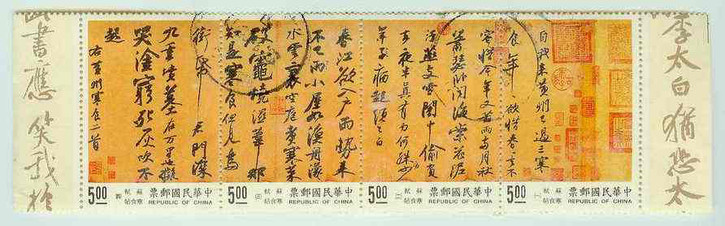 李太白猶恐太
自我來黃州已過三寒
食年 欲惜春 去不
容惜今年又苦雨兩月秋
蕭瑟臥聞海棠花泥
汙燕支雪闇中偷負
去夜半真有力何殊少
年子病起須已白
春江欲入戶雨勢來
不已雨小屋如漁舟濛
水雲裏空庖煮寒菜
破竈燒濕葦那
知是寒食但見烏
銜帋 君門深
九重墳墓在万里也擬
哭塗窮死灰吹不
起
右黃州寒食二首
書應笑我於
中華民國郵票
REPUBLIC OF CHINA
蘇軾
寒食帖
(一)
5.00
中華民國郵票
REPUBLIC OF CHINA
蘇軾
寒食帖
(二)
5.00
中華民國郵票
REPUBLIC OF CHINA
蘇軾
寒食帖
(三)
5.00
中華民國郵票
REPUBLIC OF CHINA
蘇軾
寒食帖
(四)
5.00